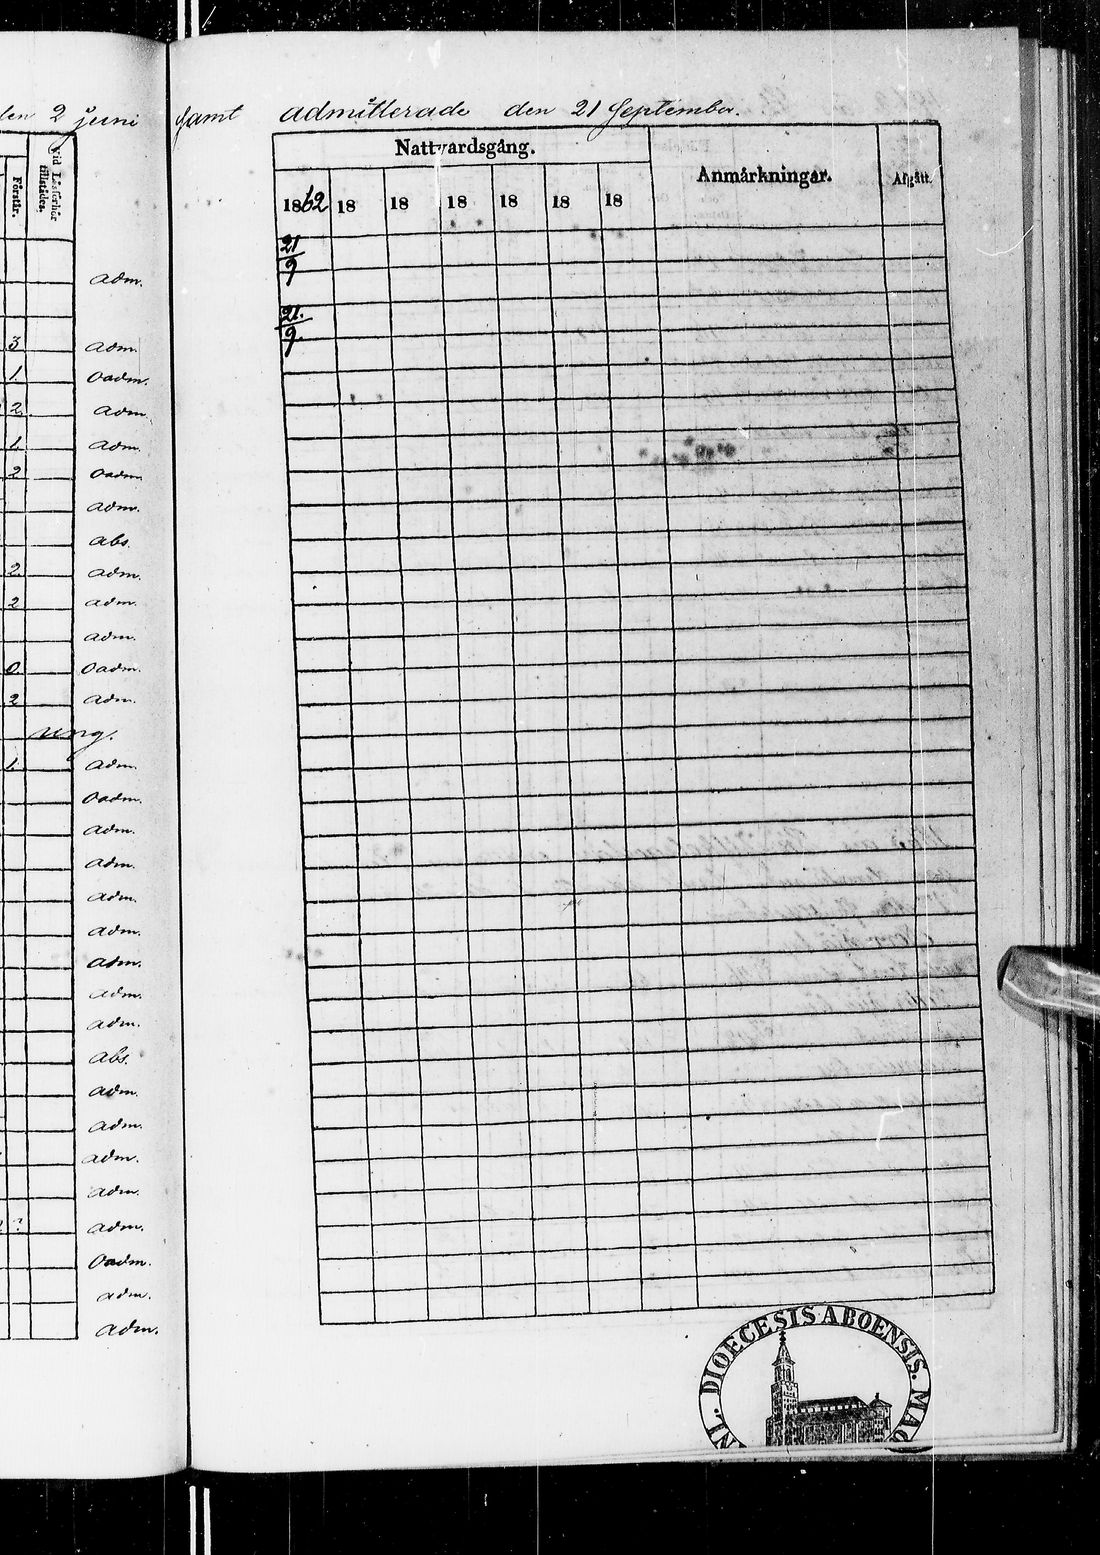 den 2 juni samt admitterade den 21 September.
Vid Läsförhör tillstådes.
Förstår.
Nattvardsgång.
Anmärkningar.
Afgått.
1862 18 18 18 18 18 18
21/9
adm.
21./9
3 adm.
1. oadm.
2 adm.
1. adm.
2 oadm.
adm.
abs.
2 adm.
2 adm.
adm.
0. oadm.
2 adm.
ung.
1. adm.
oadm.
adm.
adm.
adm.
adm.
adm.
adm.
adm.
abs.
adm.
adm.
adm.
adm.
? adm.
oadm.
adm.
adm.
NL. DIOECESIS ABOENSIS. MAG